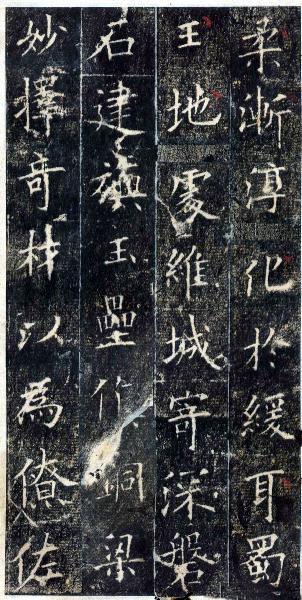 柔漸淳化於緩耳蜀
王地處維城寄深盤
石建旟玉壘作鎮銅梁
妙擇奇材以為僚佐